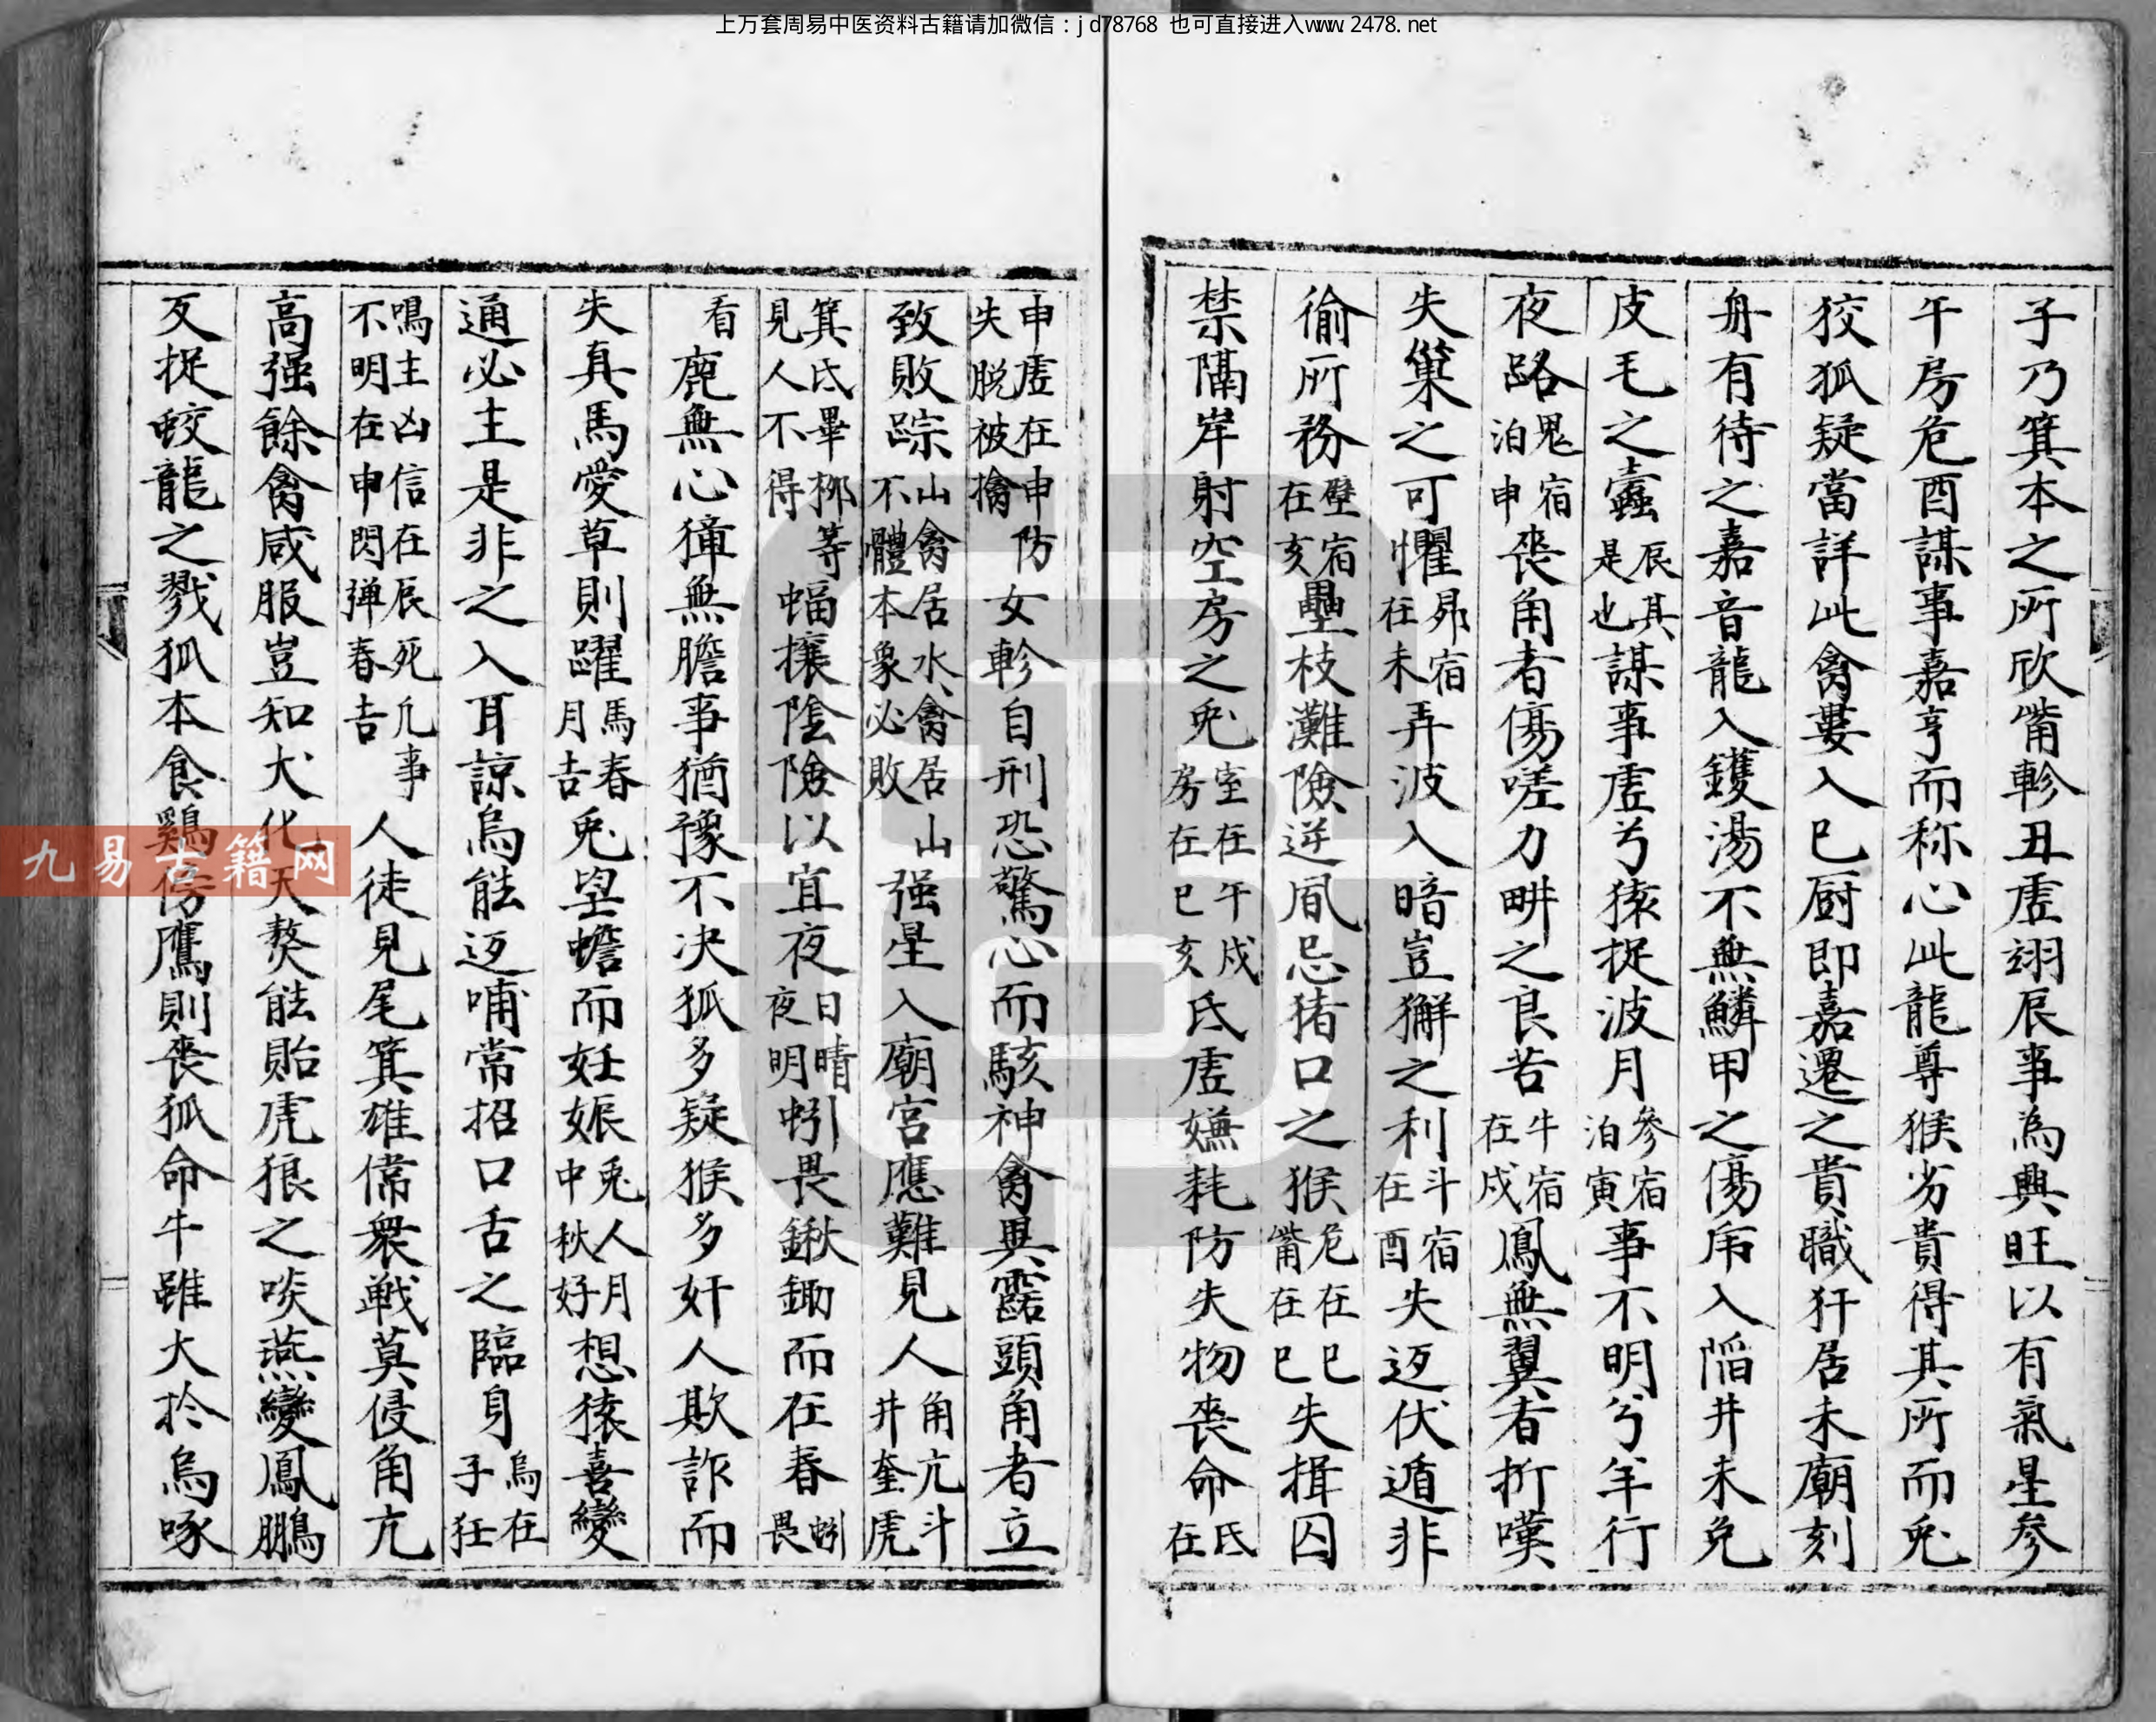 上万套周易中医资料古籍请加微信：jd78768 也可直接进入www.2478.net
子乃箕本之所欣觜軫丑虚翊辰事為興旺以有氣星参
午房危酉謀事嘉亨而称心此龍尊猴劣貴得其所而兎
狡狐疑當詳此禽婁入巳厨即嘉遷之貴職犴居未廟刻
舟有待之嘉音龍入鑊湯不無鱗甲之傷乕入陷井未免
皮毛之蠹辰是其也謀事虚兮猿捉波月參宿泊寅事不明兮羊行
夜路鬼宿泊申丧角者傷嗟力畊之良苦牛宿在戌鳳無翼者折嘆
失巢之可懼昴宿在未弄波入暗豈獬之利斗宿在酉失迈伏遁非
偷所務壁宿在亥壘枝灘險逆風忌猪口之猴危在巳觜在巳失揖囚
禁隔岸射空房之兎室在午戌房在巳亥氐虚嫌耗防失物丧命氐在
申虚在申防失脱被擒女軫自刑恐驚心而駭神禽異露頭角者立
致敗踪山禽居水禽居山不體本象必敗强星入廟宮應難見人角亢斗井奎虎
箕氐畢柳等見人不得蝠攘陰險以宜夜日晴夜明蚓畏鍬鋤而在春蚓畏
看鹿無心獐無膽事猶豫不决狐多疑猴多奸人欺詐而
失真馬愛草則躍馬春月吉兎望蟾而妊娠兎人人月中秋好想猿喜變
通必主是非之入耳諒烏能迈哺常招口舌之臨身烏在子狂
鳴主凶信在辰死凢事不明在申閃弹春吉人徒見尾箕雄常衆戰莫侵角亢
高强餘禽咸服豈知犬化天獒能貽虎狼之啖燕變鳳鵬
反捉蛟龍之戮狐本食鷄傍鷹則丧狐命牛雖大扵烏啄
九易古籍网